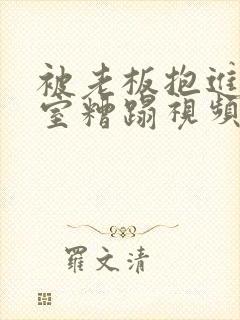 被老板抱進
室糟蹋視頻
羅文清